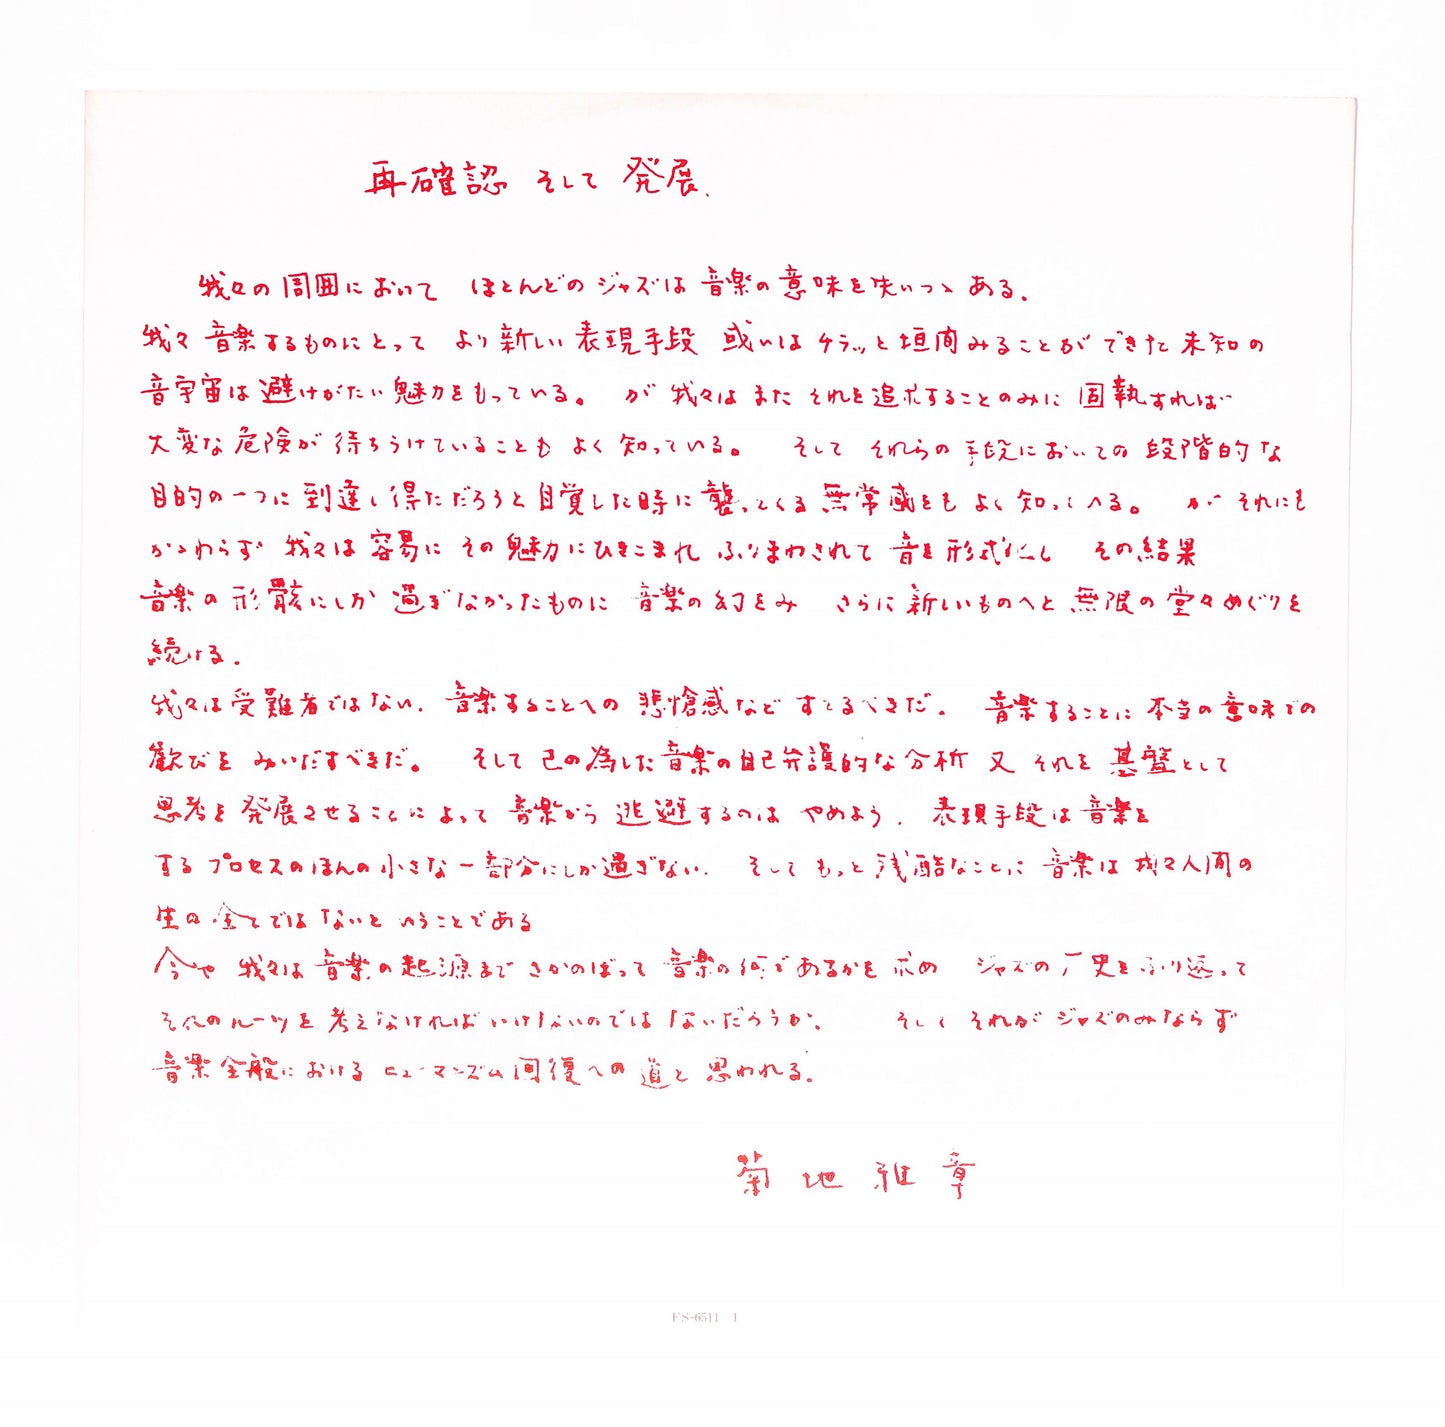 再確認 そして 発展.
我々の周囲において ほとんどのジャズは音楽の意味を失いつゝある.
我々音楽するものにとって より新しい表現手段 或いはチラッと垣間みることができた未知の
音宇宙は避けがたい魅力をもっている。 が我々はまたそれを追求することのみに固執すれば
大変な危険が待ちうけていることもよく知っている。 そしてそれらの手段においての段階的な
目的の一つに到達し得ただろうと自覚した時に襲ってくる無常感をもよく知っている。 がそれにも
かゝわらず我々は容易にその魅力にひきこまれふりまわされて音を形式化し その結果
音楽の形骸にしか過ぎなかったものに音楽の幻をみ さらに新しいものへと無限の堂々めぐりを
続ける.
我々は受難者ではない. 音楽することへの悲愴感などすてるべきだ. 音楽することに本当の意味での
歓びをみいだすべきだ。 そして己の為した音楽の自己弁護的な分析 又それを基盤として
思考を発展させることによって音楽から逃避するのはやめよう. 表現手段は音楽を
するプロセスのほんの小さな一部分にしか過ぎない. そしてもっと残酷なことに音楽は我々人間の
生の全てではないということである
今や我々は音楽の起源までさかのぼって音楽の何であるかを求め ジャズの歴史をふり返って
そのルーツを考えなければいけないのではないだろうか. そしてそれがジャズのみならず
音楽全般におけるヒューマニズム回復への道と思われる.
菊地雅章
FS-6511 1